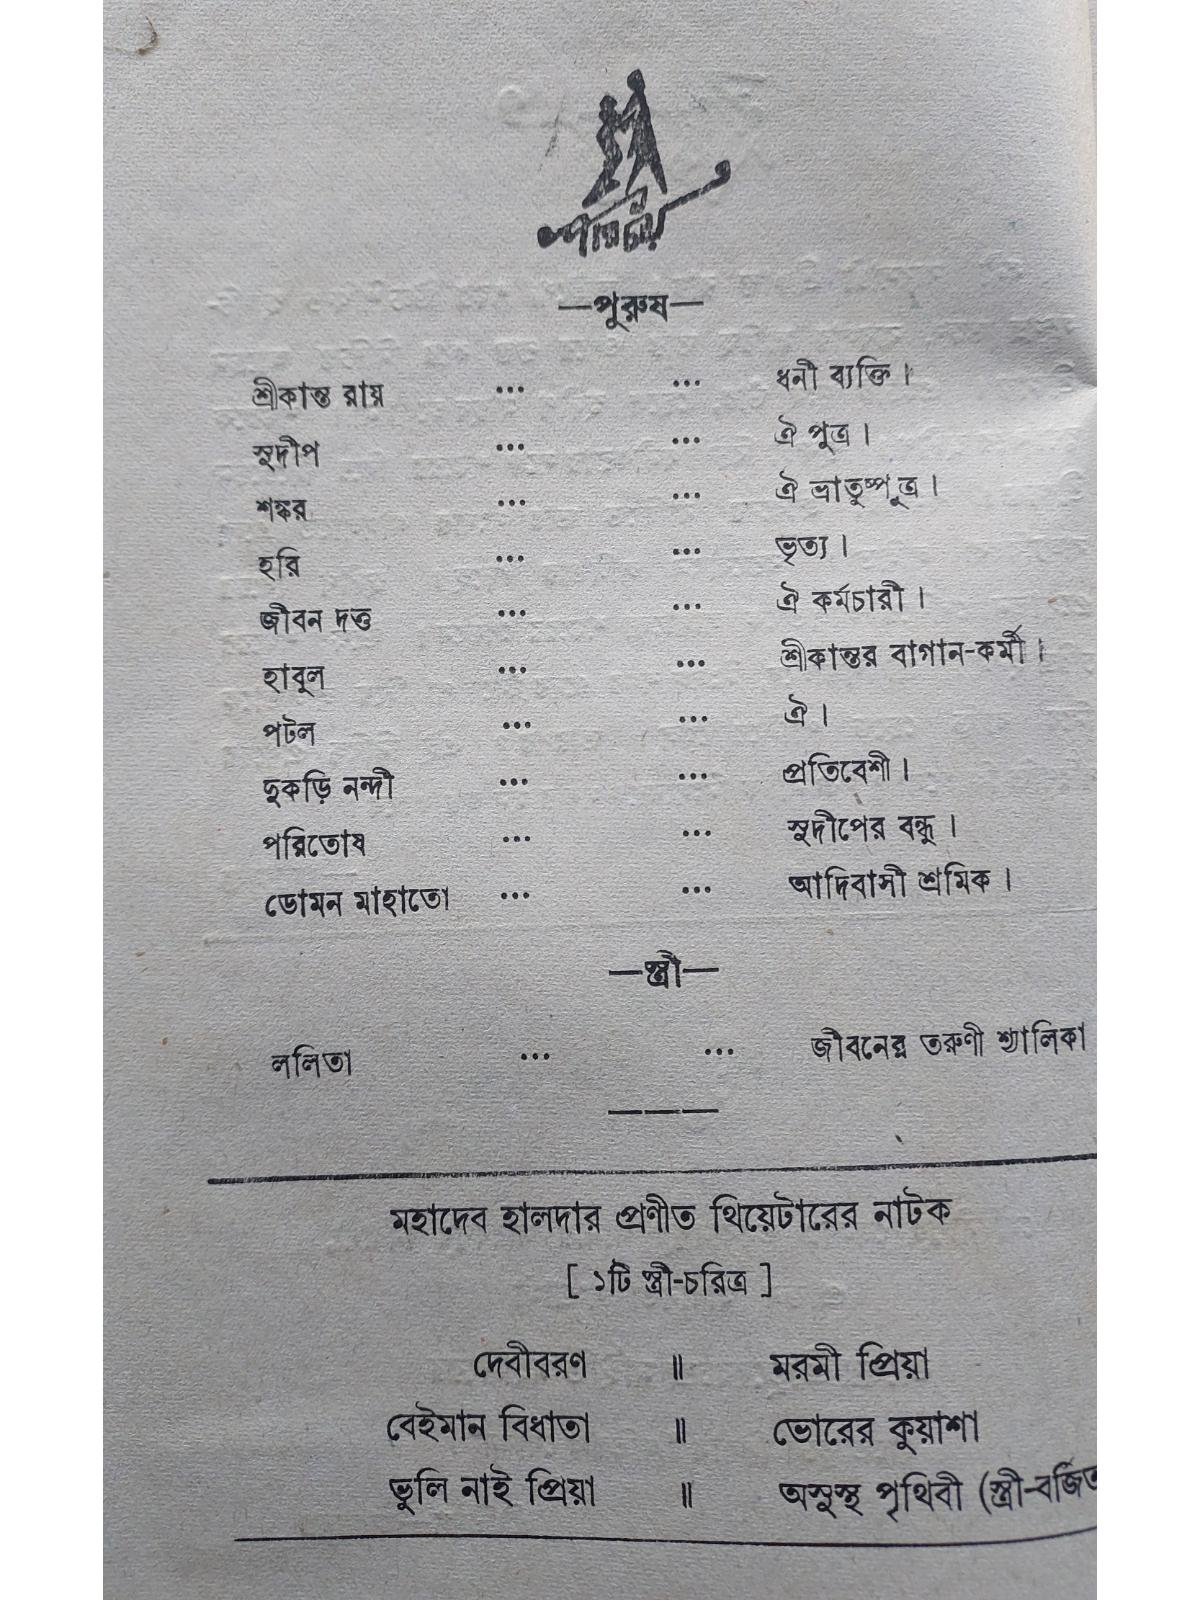 পরিচয়
—পুরুষ—
শ্রীকান্ত রায় ... ... ধনী ব্যক্তি।
সুদীপ ... ... ঐ পুত্র।
শঙ্কর ... ... ঐ ভ্রাতুষ্পুত্র।
হরি ... ... ভৃত্য।
জীবন দত্ত ... ... ঐ কর্মচারী।
হাবুল ... ... শ্রীকান্তর বাগান-কর্মী।
পটল ... ... ঐ।
দুকড়ি নন্দী ... ... প্রতিবেশী।
পরিতোষ ... ... সুদীপের বন্ধু।
ডোমন মাহাতো ... ... আদিবাসী শ্রমিক।
—স্ত্রী—
ললিতা ... ... জীবনের তরুণী শ্যালিকা
———
মহাদেব হালদার প্রণীত থিয়েটারের নাটক
[ ১টি স্ত্রী-চরিত্র ]
দেবীবরণ ॥ মরমী প্রিয়া
বেইমান বিধাতা ॥ ভোরের কুয়াশা
ভুলি নাই প্রিয়া ॥ অসুস্থ পৃথিবী (স্ত্রী-বর্জিত